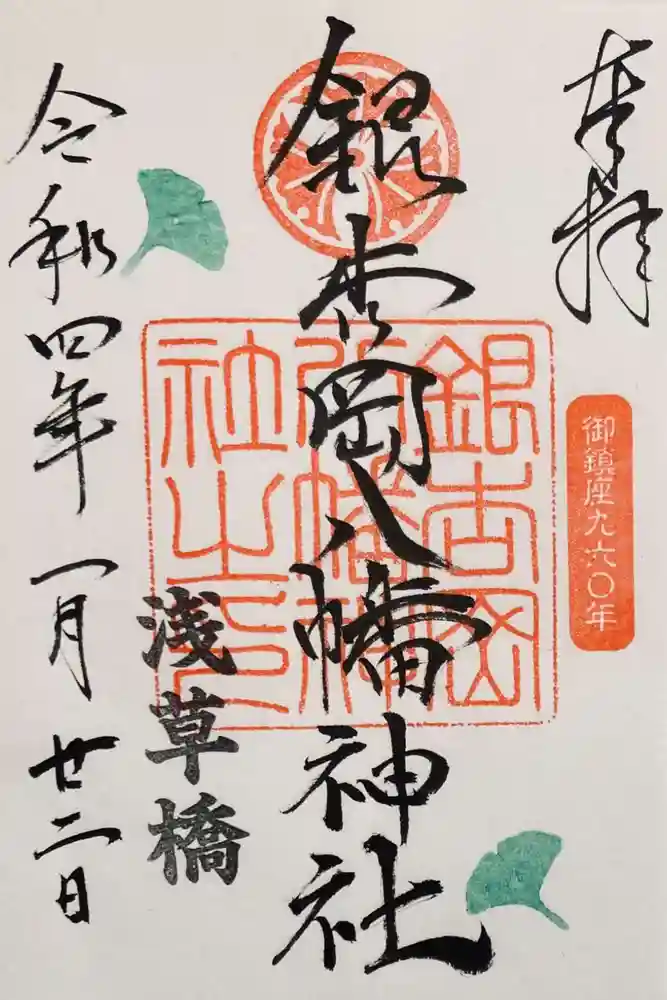 奉拝
御鎮座九六〇年
銀杏岡八幡神社
銀杏岡
八幡神
社之印
浅草橋
令和四年一月廿二日